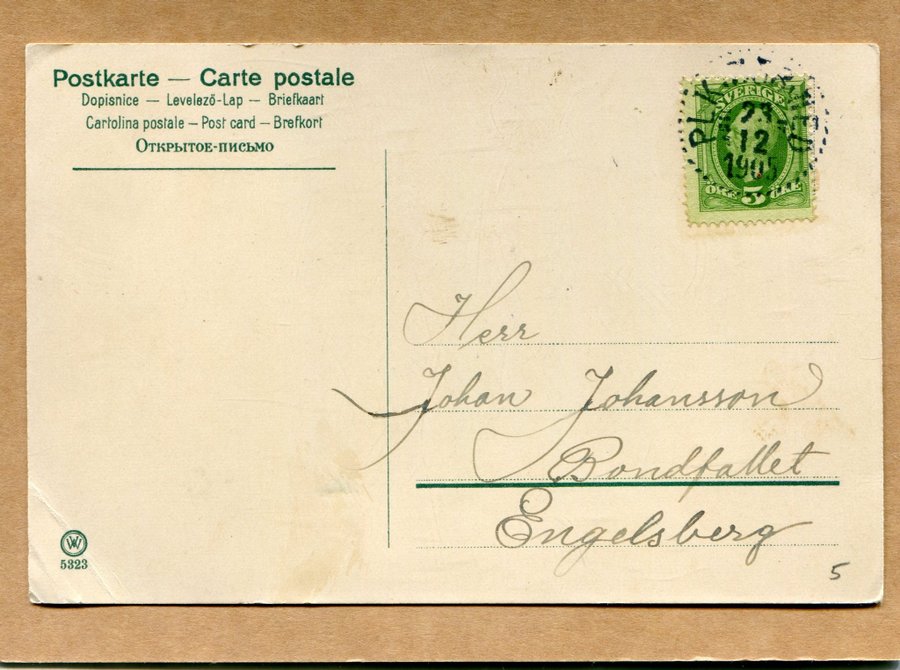 Postkarte — Carte postale
Dopisnice — Levelező-Lap — Briefkaart
Cartolina postale – Post card – Brefkort
Открытое-письмо
SVERIGE
23
12
1905
ÖRE 5 ÖRE
Herr
Johan Johansson
Bondfallet
Engelsberg
W
5323
5